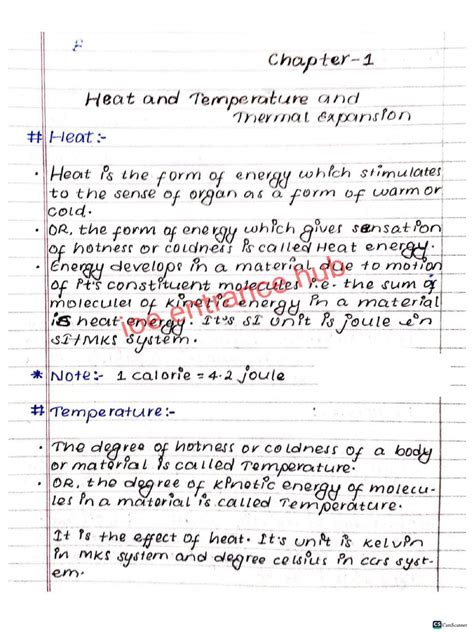 Chapter-1
Heat and Temperature and
Thermal Expansion
# Heat:-
• Heat is the form of energy which stimulates
to the sense of organ as a form of warm or
cold.
• OR, the form of energy which gives sensation
of hotness or coldness is called Heat energy.
• Energy develops in a material due to motion
of it's constituent molecules i.e. the sum of
molecules of kinetic energy in a material
is heat energy. It's SI unit is joule in
SI+MKS system.
ioe entrance hub
* Note:- 1 calorie = 4.2 joule
# Temperature:-
• The degree of hotness or coldness of a body
or material is called Temperature.
• OR, the degree of kinetic energy of molecu-
les in a material is called Temperature.
It is the effect of heat. It's unit is kelvin
in MKS system and degree celsius in CGS syst-
em.
CS CamScanner